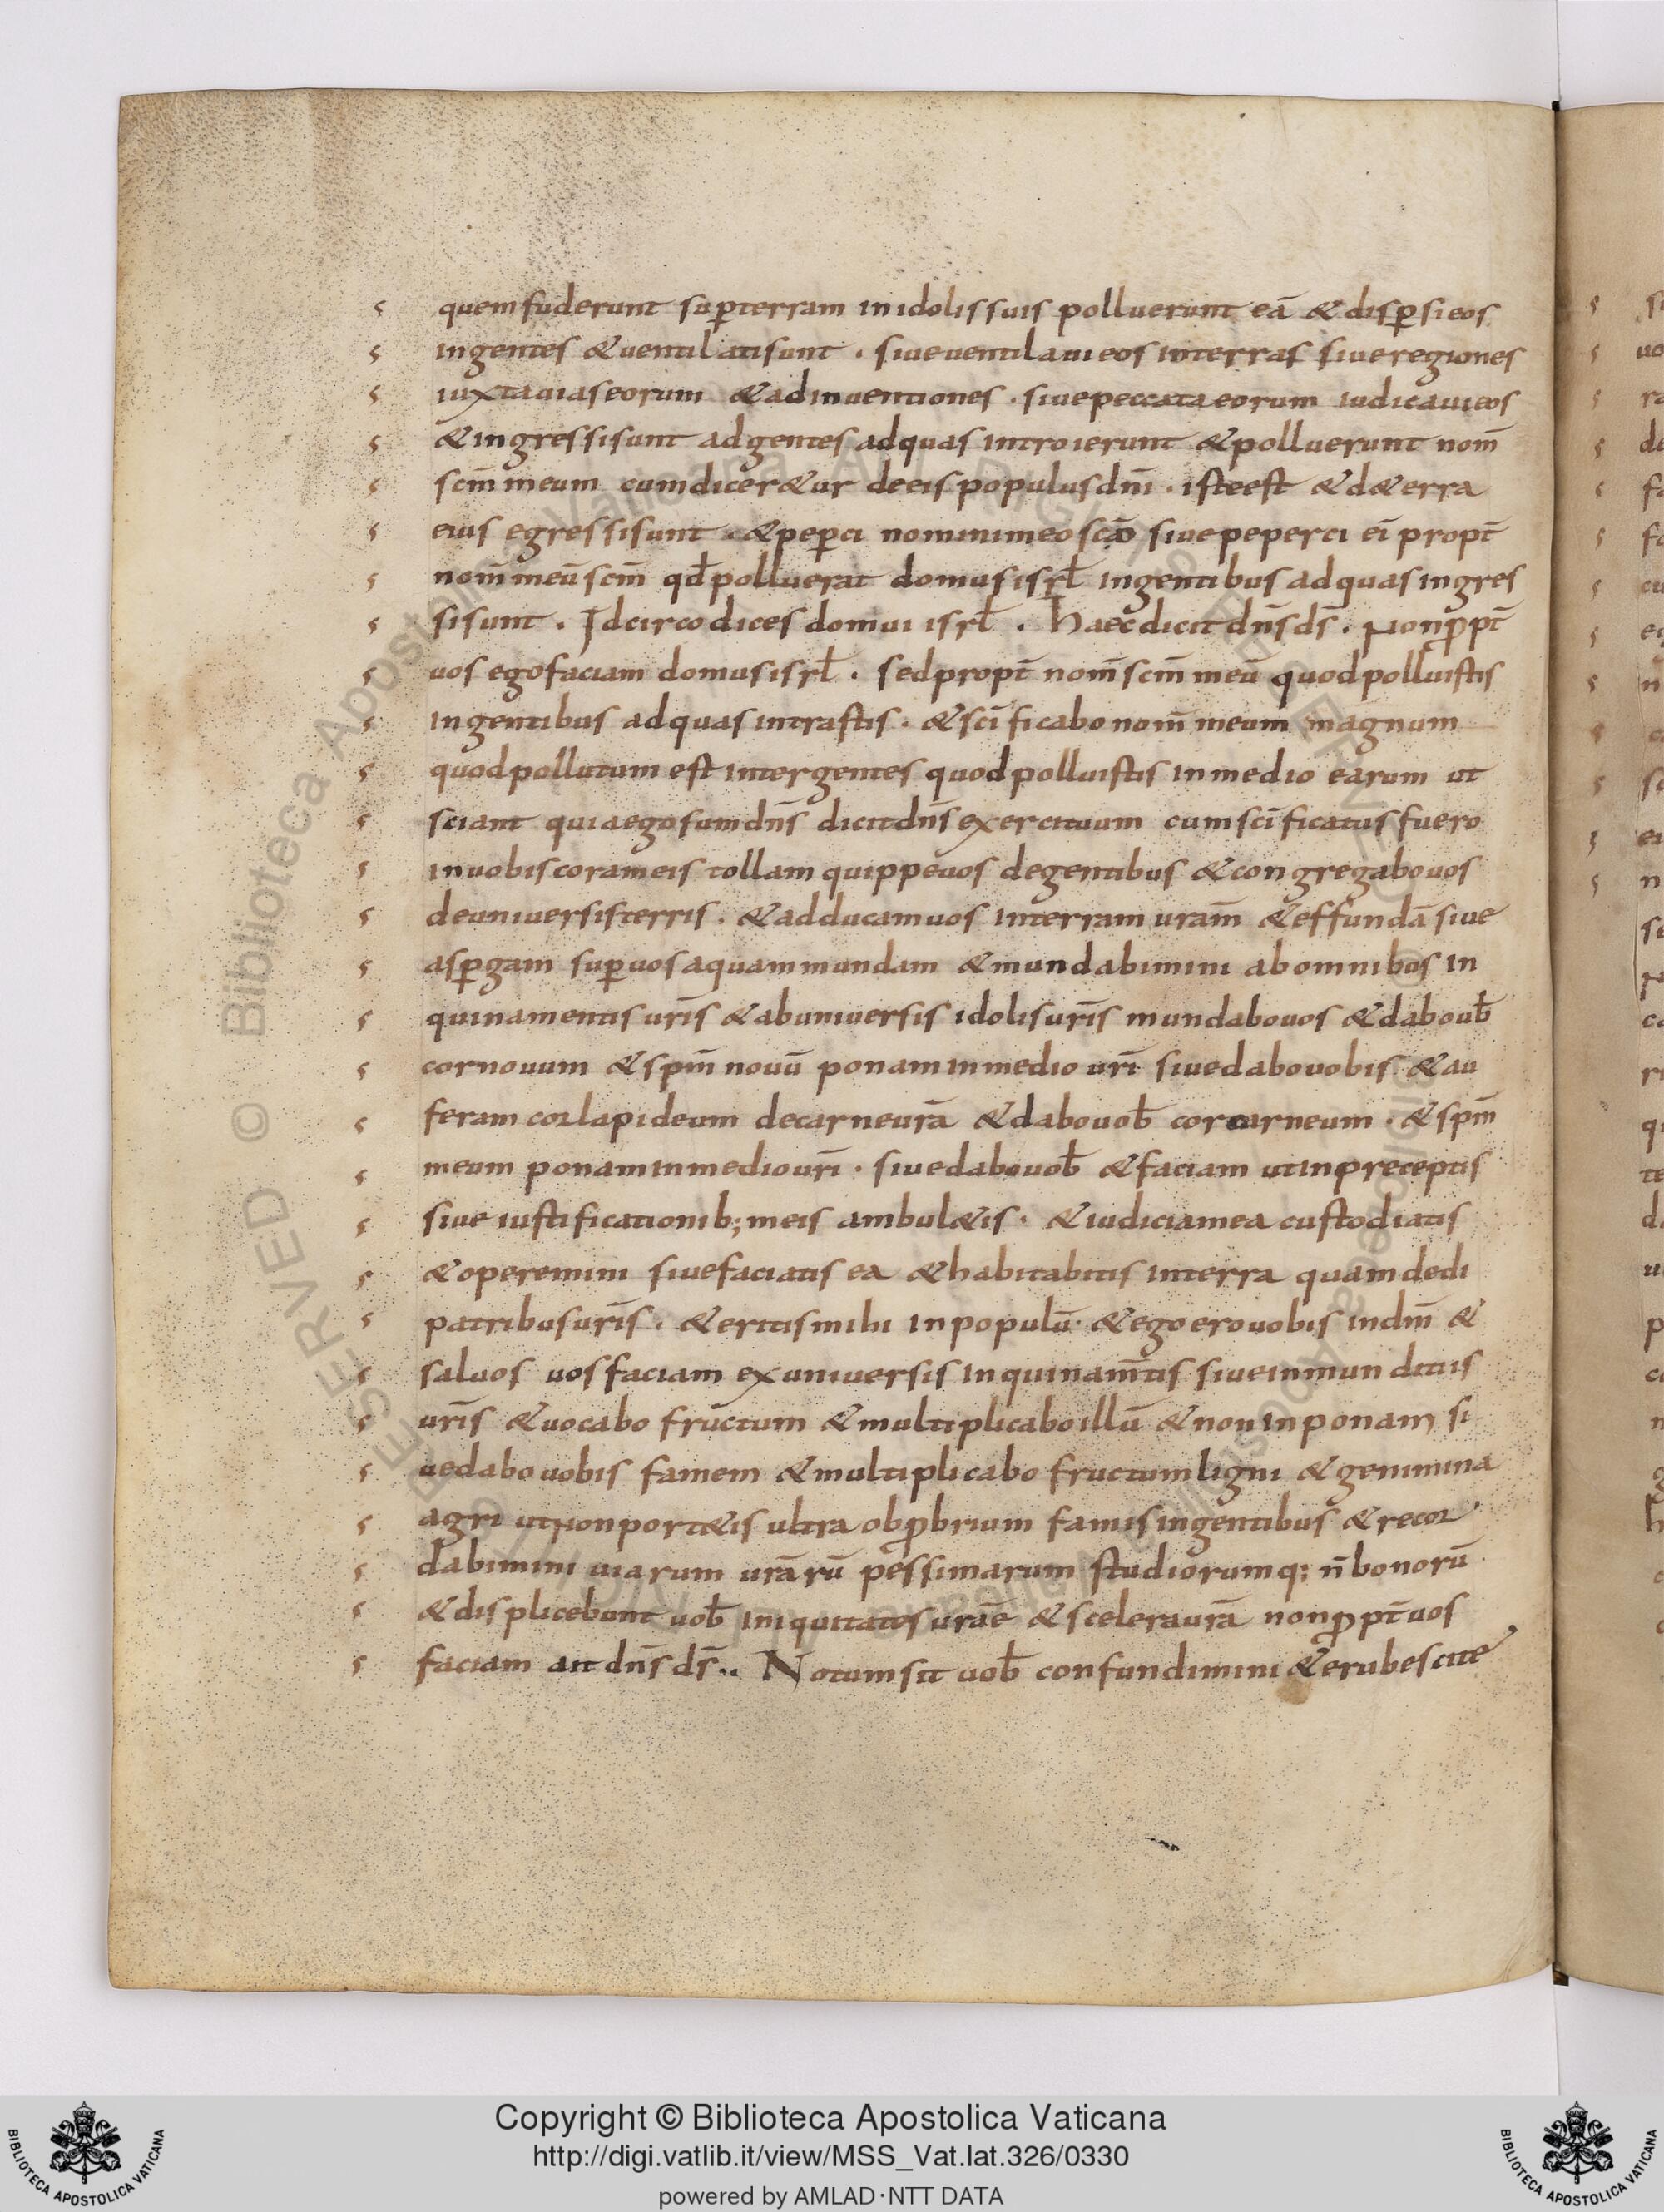 quem fuderunt sup̄ terram in idolis suis polluerunt eā & disp̄si eos
in gentes & uentilati sunt · siue uentilaui eos in terras siue regiones
iuxta uias eorum & adinuentiones · siue peccata eorum iudicaui eos
& ingressi sunt ad gentes ad quas introierunt & polluerunt nom̄
scm̄ meum cum dicer&ur de eis populus dnī · iste est & de terra
eius egressi sunt · & pep̄ci nomini meo scō siue peperci ei propt̄
nom̄ meū scm̄ qd̄ polluerat domus isrl̄ in gentibus ad quas ingres
si sunt · Idcirco dices domui isrl̄ · haec dicit dn̄s ds̄ · Non ꝓpt̄
uos ego faciam domus isrl̄ · sed propt̄ nom̄ scm̄ meū quod polluistis
in gentibus ad quas intrastis · & scīficabo nom̄ meum magnum
quod pollutum est inter gentes quod polluistis in medio earum ut
sciant quia ego sum dn̄s dicit dn̄s exercituum cum scīficatus fuero
in uobis coram eis tollam quippe uos de gentibus & congregabo uos
de uniuersis terris · & adducam uos in terram uram̄ & effundā siue
asp̄gam sup̄ uos aquam mundam & mundabimini ab omnibus in
quinamentis urīs & ab uniuersis idolis urīs mundabo uos & dabo uob̄
cor nouum & spm̄ nouū ponam in medio urī siue dabo uobis & au
feram cor lapideum de carne urā & dabo uob̄ cor carneum · & spm̄
meum ponam in medio urī · siue dabo uob̄ & faciam ut in preceptis
siue iustificationib; meis ambul&is · & iudicia mea custodiatis
& operemini siue faciatis ea & habitabitis in terra quam dedi
patribus urīs · & eritis mihi in populū · & ego ero uobis in dm̄ &
saluos uos faciam ex uniuersis inquinam̄tis siue inmunditiis
urīs & uocabo fructum & multiplicabo illū & non inponam si
ue dabo uobis famem & multiplicabo fructum ligni & genimina
agri ut non port&is ultra obꝓbrium famis in gentibus & recor
dabimini uiarum urārū pessimarum studiorumq; n̄ bonorū
& displicebunt uob̄ iniquitates urāe & scelera urā non ꝓpt̄ uos
faciam ait dn̄s ds̄ ·. Notum sit uob̄ confundimini & erubescite
Copyright © Biblioteca Apostolica Vaticana
http://digi.vatlib.it/view/MSS_Vat.lat.326/0330
powered by AMLAD·NTT DATA
BIBLIOTECA APOSTOLICA VATICANA
BIBLIOTECA APOSTOLICA VATICANA